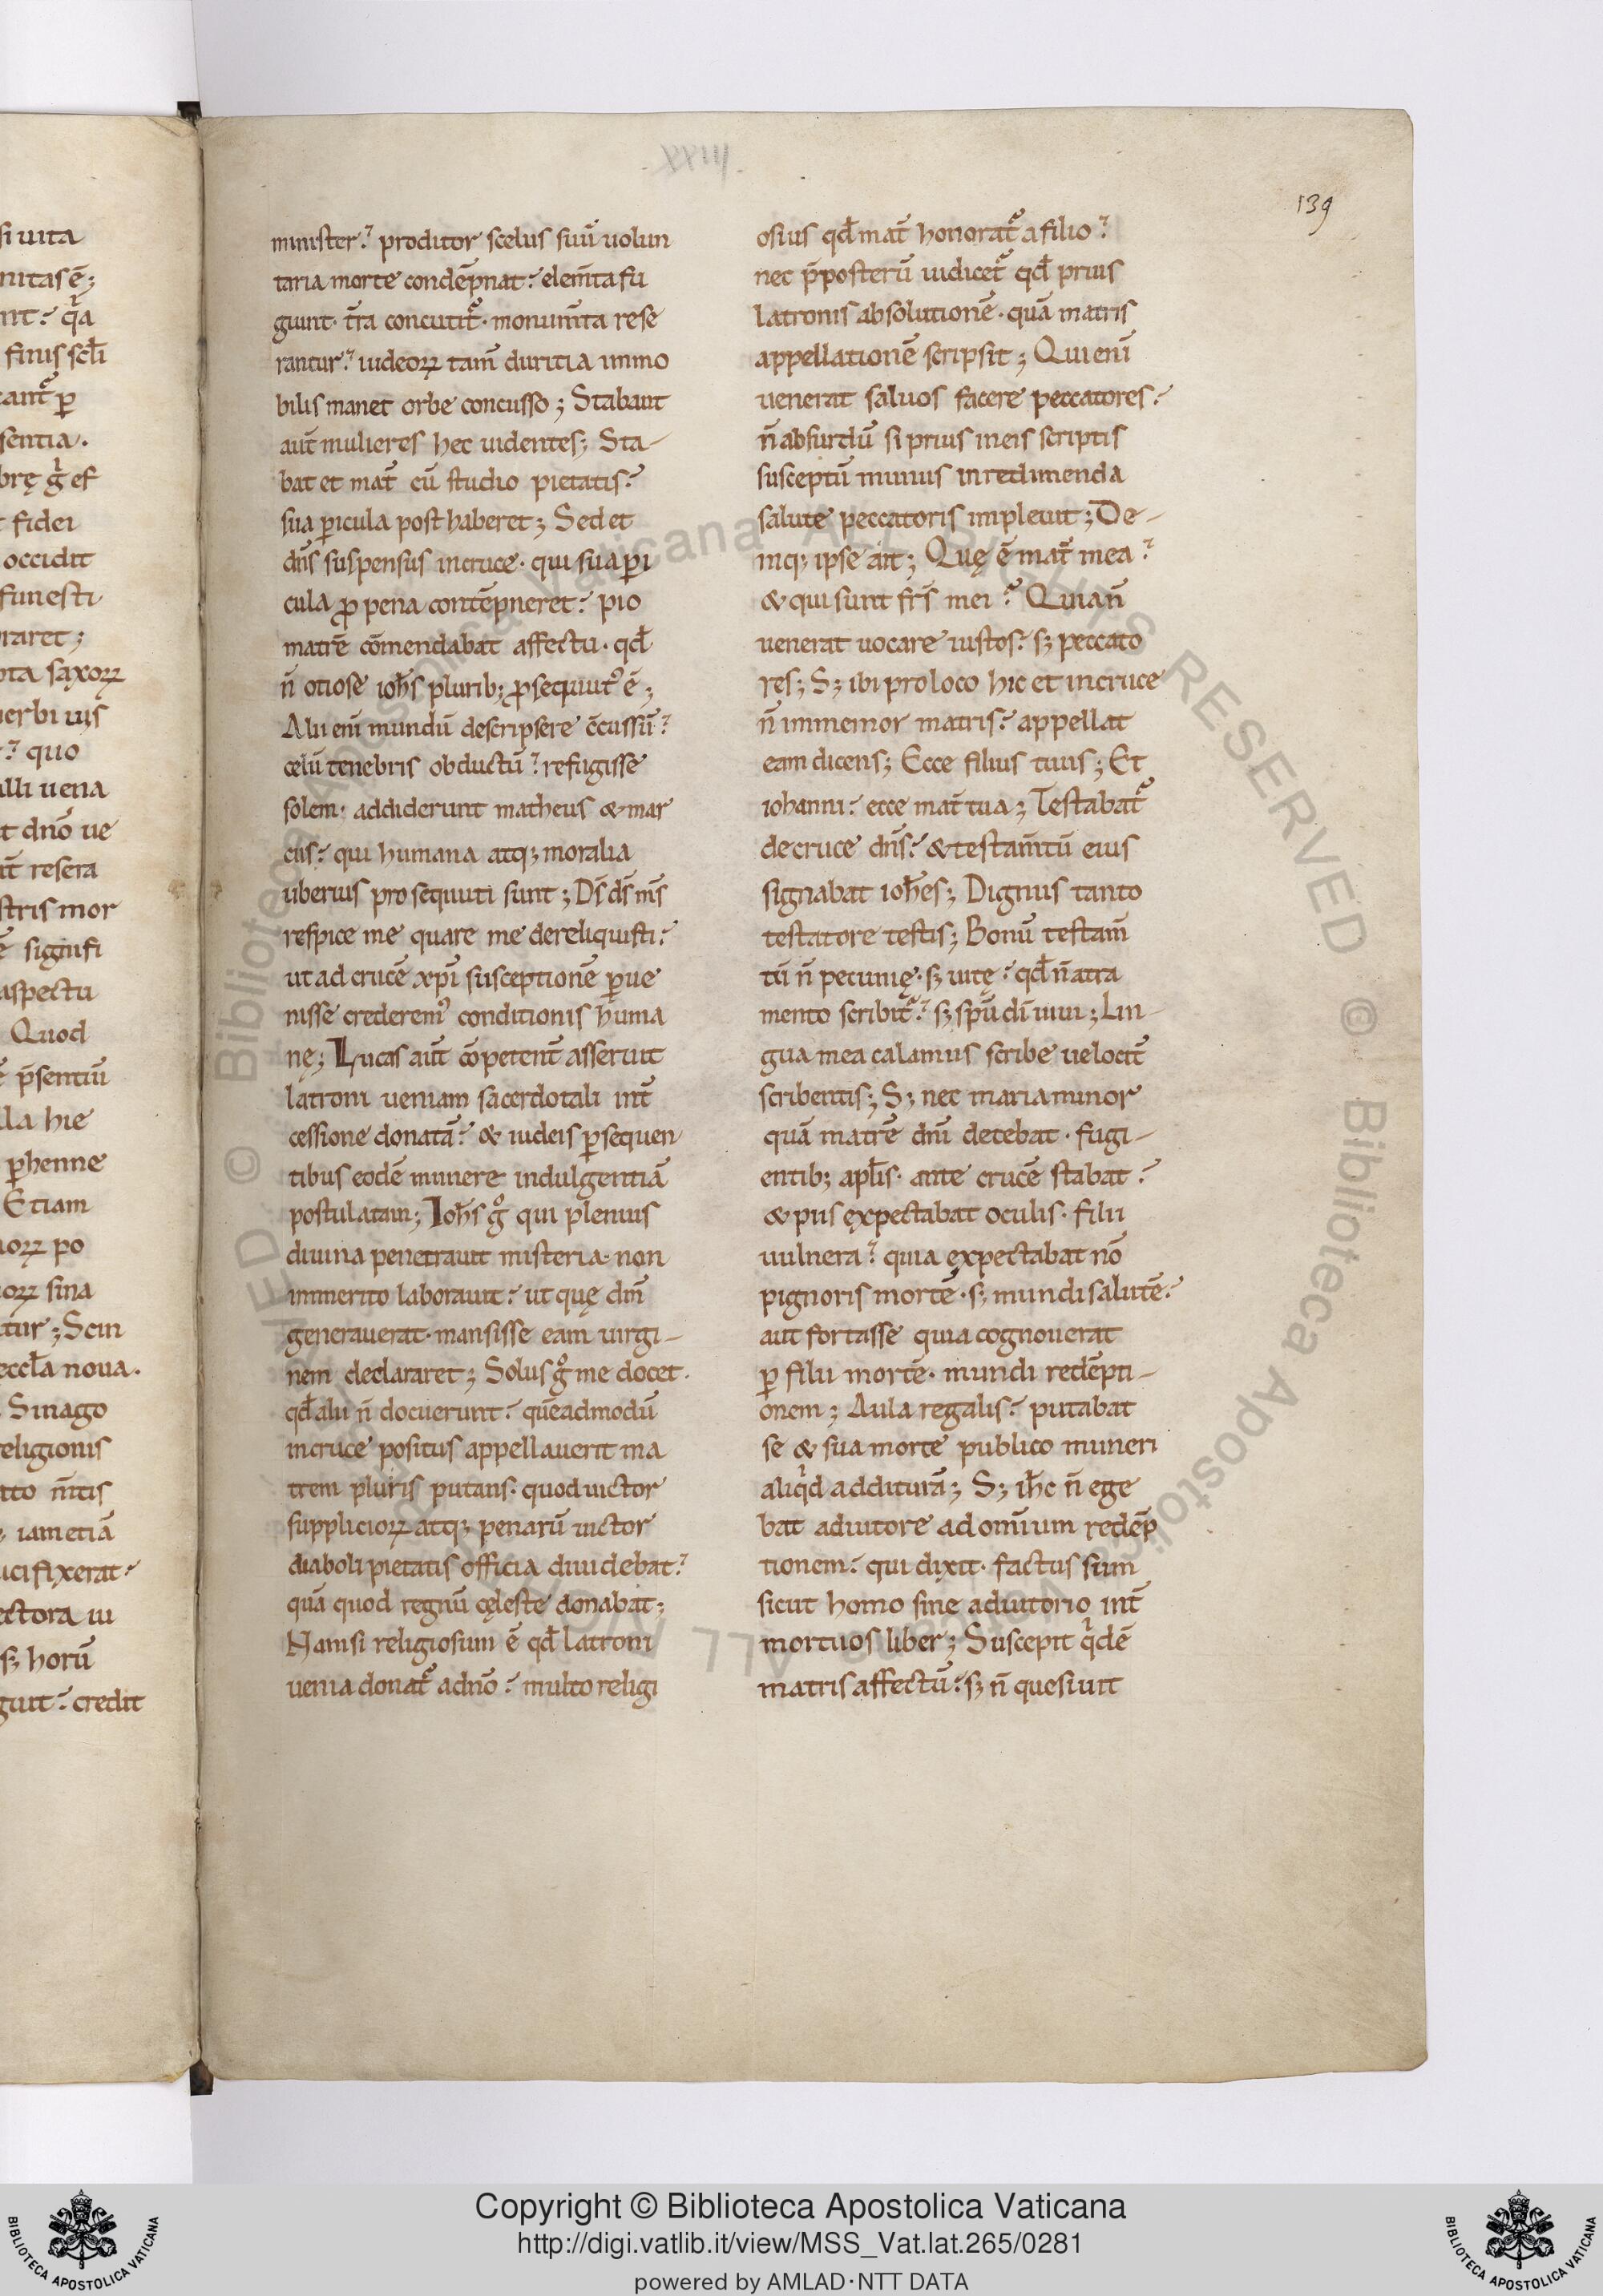 si uita
nitas ē;
nt? q̓a
finis scł̄i
cant᷑ ꝑ
sentia.
brę g̓ ef
t fidei
occidit
funesti
raret;
ota saxoꝝ
uerbi uis
r? quo
alli uena
t dn̄o ue
t̄ resera
stris mor
ē signifi
aspectu
Quod
ē p̄sentiū
lla hie
ꝑhenne
Etiam
noꝝ po
oꝝ sina
tur; Scin
eccł̄a noua.
Sinago
religionis
tto n̄tis
iam etiā
ucifixerat?
ectora iu
s; horū
guit? credit
XXIII.
139
minister? proditor scelus suū uolun
taria morte condēpnat? elem̄ta fu
giunt· t̄ra concutit᷑· monum̄ta rese
rantur? iudeoꝝ tam̄ duritia immo
bilis manet orbe concusso; Stabant
aūt mulieres hec uidentes; Sta-
bat et mat̄ cū studio pietatis?
sua ꝑicula posthaberet; Sed et
dn̄s suspensus in cruce· qui sua ꝑi
cula ꝓ pena contēpneret? pio
matrē cōmendabat affectu· qd̄
n̄ otiose ioh̄s plurib; ꝓsequut᷒ ē;
Alii eni᷑ mundū descripsere c̄cussū?
celū tenebris obductū? refugisse
solem· addiderunt matheus & mar
cus? qui humana atq; moralia
uberius prosequuti sunt; Ds̄ ds̄ ms̄
respice me quare me dereliquisti?
ut ad crucē xp̄i susceptionē ꝑue
nisse crederem᷒ conditionis huma
nę; Lucas aūt cōpetent̄ asseruit
latroni ueniam sacerdotali int̄
cessione donatā? & iudeis ꝑsequen
tibus eodē munere indulgentiā
postulatam; Ioh̄s g̊ qui plenius
diuina penetrauit misteria· non
immerito laborauit? ut quę dn̄m
generauerat· mansisse eam uirgi-
nem declararet; Solus g̊ me docet·
qd̄ alii n̄ docuerunt? quēadmodū
in cruce positus appellauerit ma
trem pluris putans· quod uictor
supplicioꝝ atq; penarū uictor
diaboli pietatis officia diuidebat?
quā quod regnū cęleste donabat;
Nam si religiosum ē qd̄ latroni
uenia donat᷑ a dn̄o? multo religi
osius qd̄ mat̄ honorat᷑ a filio?
nec p̄posterū iudicet᷑ qd̄ prius
latronis absolutionē· quā matris
appellationē scripsit; Qui eni᷑
uenerat saluos facere peccatores?
n̄ absurdū si prius in eis scriptis
susceptū munus in redimenda
salute peccatoris impleuit; De-
inq; ipse ait; Quę ē mat̄ mea?
& qui sunt fr̄s mei? Quia n̄
uenerat uocare iustos? s; peccato
res; S; ibi pro loco hic et in cruce
n̄ immemor matris? appellat
eam dicens; Ecce filius tuus; Et
iohanni? ecce mat̄ tua; Testabat᷑
de cruce dn̄s? & testam̄tū eius
signabat ioh̄es; Dignus tanto
testatore testis; Bonū testam̄
tū n̄ pecunię· s; uitę? qd̄ n̄ atra
mento scribit᷑? s; sp̄u di᷑ uiui; Lin-
gua mea calamus scribe uelocit̄
scribentis; S; nec maria minor
quā matrē dn̄i decebat· fugi-
entib; apł̄is· ante crucē stabat?
& piis ęxpectabat oculis· filii
uulnera? quia ęxpectabat nō
pignoris mortē· s; mundi salutē?
aut fortasse quia cognouerat
ꝑ filii mortē· mundi redēpti-
onem; Aula regalis? putabat
se & sua morte publico muneri
aliq̓d addituram; S; ih̄c n̄ ege
bat adiutore ad omnium redēp
tionem? qui dixit· factus sum
sicut homo sine adiutorio int̄
mortuos liber; Suscepit q̓dē
matris affectū? s; n̄ quesiuit
Copyright © Biblioteca Apostolica Vaticana
http://digi.vatlib.it/view/MSS_Vat.lat.265/0281
powered by AMLAD·NTT DATA
BIBLIOTECA APOSTOLICA VATICANA
BIBLIOTECA APOSTOLICA VATICANA